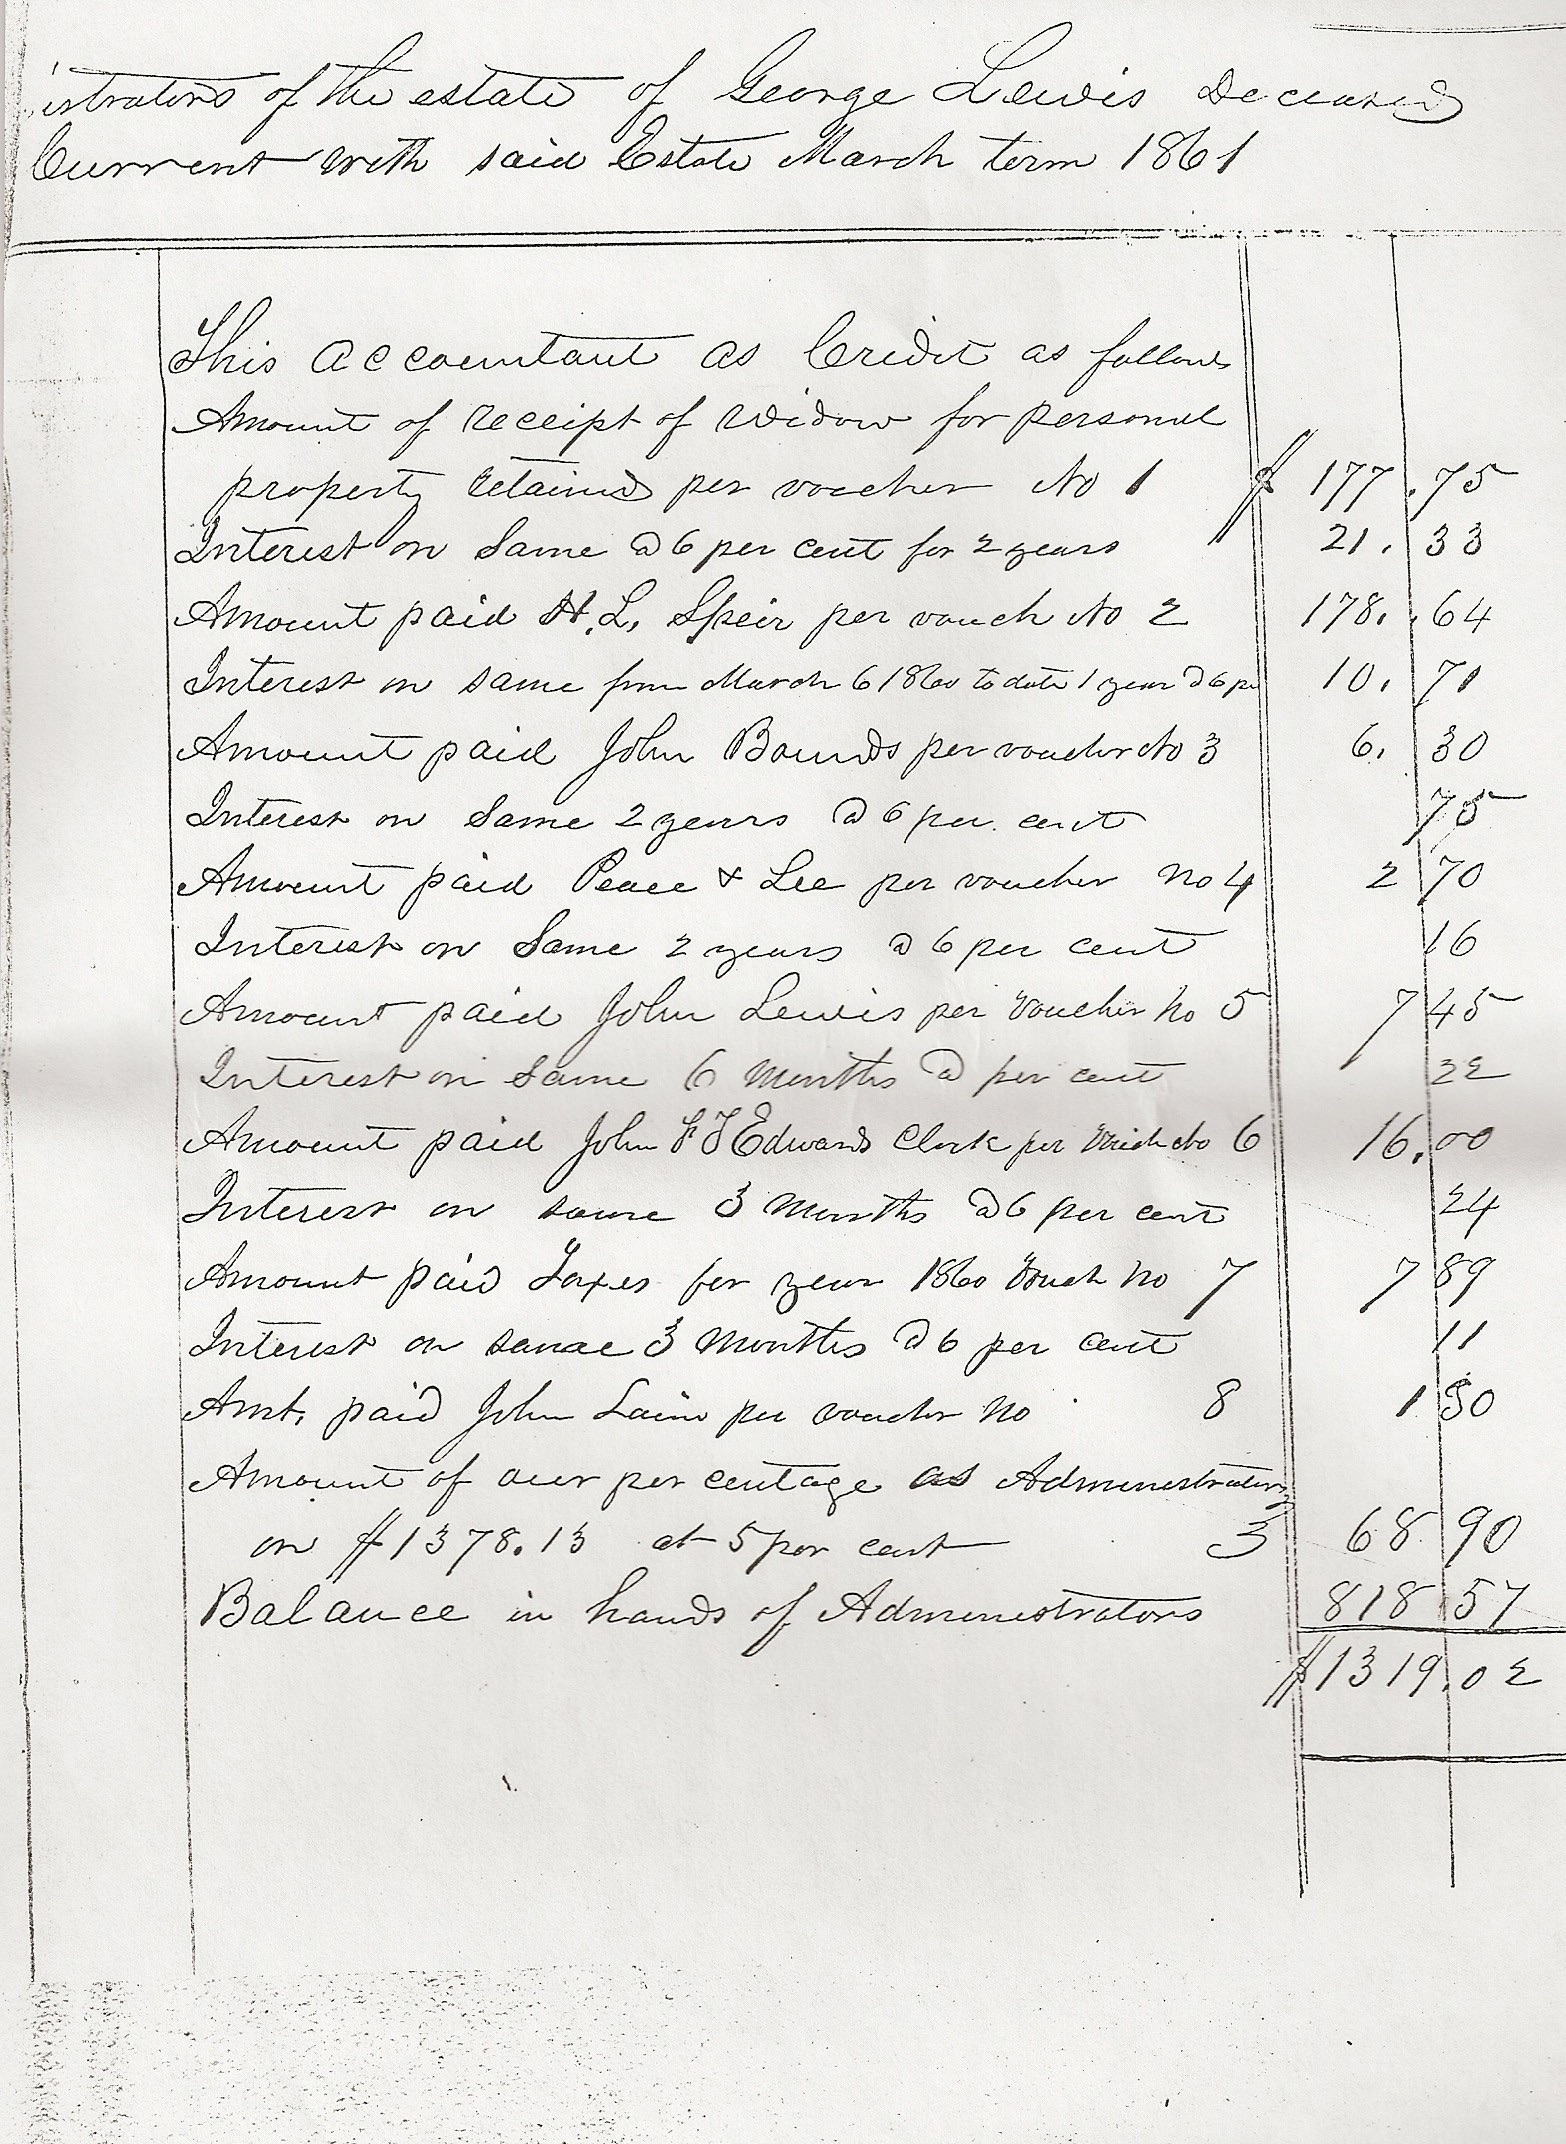 istrators of the estate of George Lewis Deceased
Current with said Estate March term 1861
This accountant as Credit as follows
Amount of receipt of Widow for personal
property retained per voucher No 1 $ 177.75
Interest on Same @ 6 per cent for 2 years 21.33
Amount paid H. L. Speir per vouch No 2 178.64
Interest on same from March 6 1860 to date 1 year @ 6 pr 10.71
Amount paid John Bounds per voucher No 3 6.30
Interest on Same 2 years @ 6 per cent 75
Amount paid Peace & Lee per voucher No 4 2 70
Interest on Same 2 years @ 6 per cent 16
Amount paid John Lewis per voucher No 5 7 45
Interest on Same 6 Months @ per cent 22
Amount paid John F T Edwards Clerk per Vouch No 6 16.00
Interest on same 3 Months @ 6 per cent 24
Amount paid Taxes for year 1860 Vouch No 7 7 89
Interest on same 3 Months @ 6 per cent 11
Amt. paid John Lain per voucher No 8 1 50
Amount of our per centage as Administrators
on $1378.13 at 5 per cent 3 68 90
Balance in hands of Administrators 818 57
$1319.02